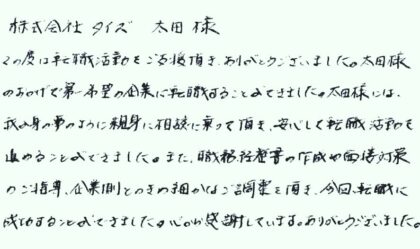 株式会社タイズ 太田様
この度は転職活動をご支援頂き、ありがとうございました。太田様
のおかげで第一希望の企業に転職することができました。太田様には、
我が身の事のように親身に相談に乗って頂き、安心して転職活動を
進めることができました。また、職務経歴書の作成や面接対策
のご指導、企業側とのきめ細かなご調整を頂き、今回、転職に
成功することができました。心から感謝しています。ありがとうございました。